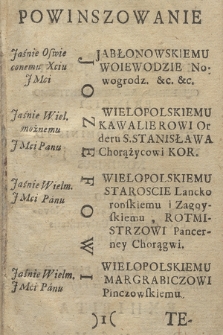 POWINSZOWANIE
Jaśnie Oświe
conemu Xciu
J Mci
JABŁONOWSKIEMU
WOIEWODZIE No-
wogrodz. &c. &c.
Jaśnie Wiel.
możnemu
J Mci Panu
WIELOPOLSKIEMU
KAWALIEROWI Or
deru S. STANISŁAWA
Chorążycowi KOR.
Jaśnie Wielm.
J Mci Panu
WIELOPOLSKIEMU
STAROSCIE Lancko
ronſkiemu i Zagoy-
skiemu ROTMI-
STRZOWI Pancer-
ney Chorągwi.
Jaśnie Wielm.
J Mci Panu
WIELOPOLSKIEMU
MARGRABICZOWI
Pinczowſkiemu.
JOZEFOWI
)1( TE-